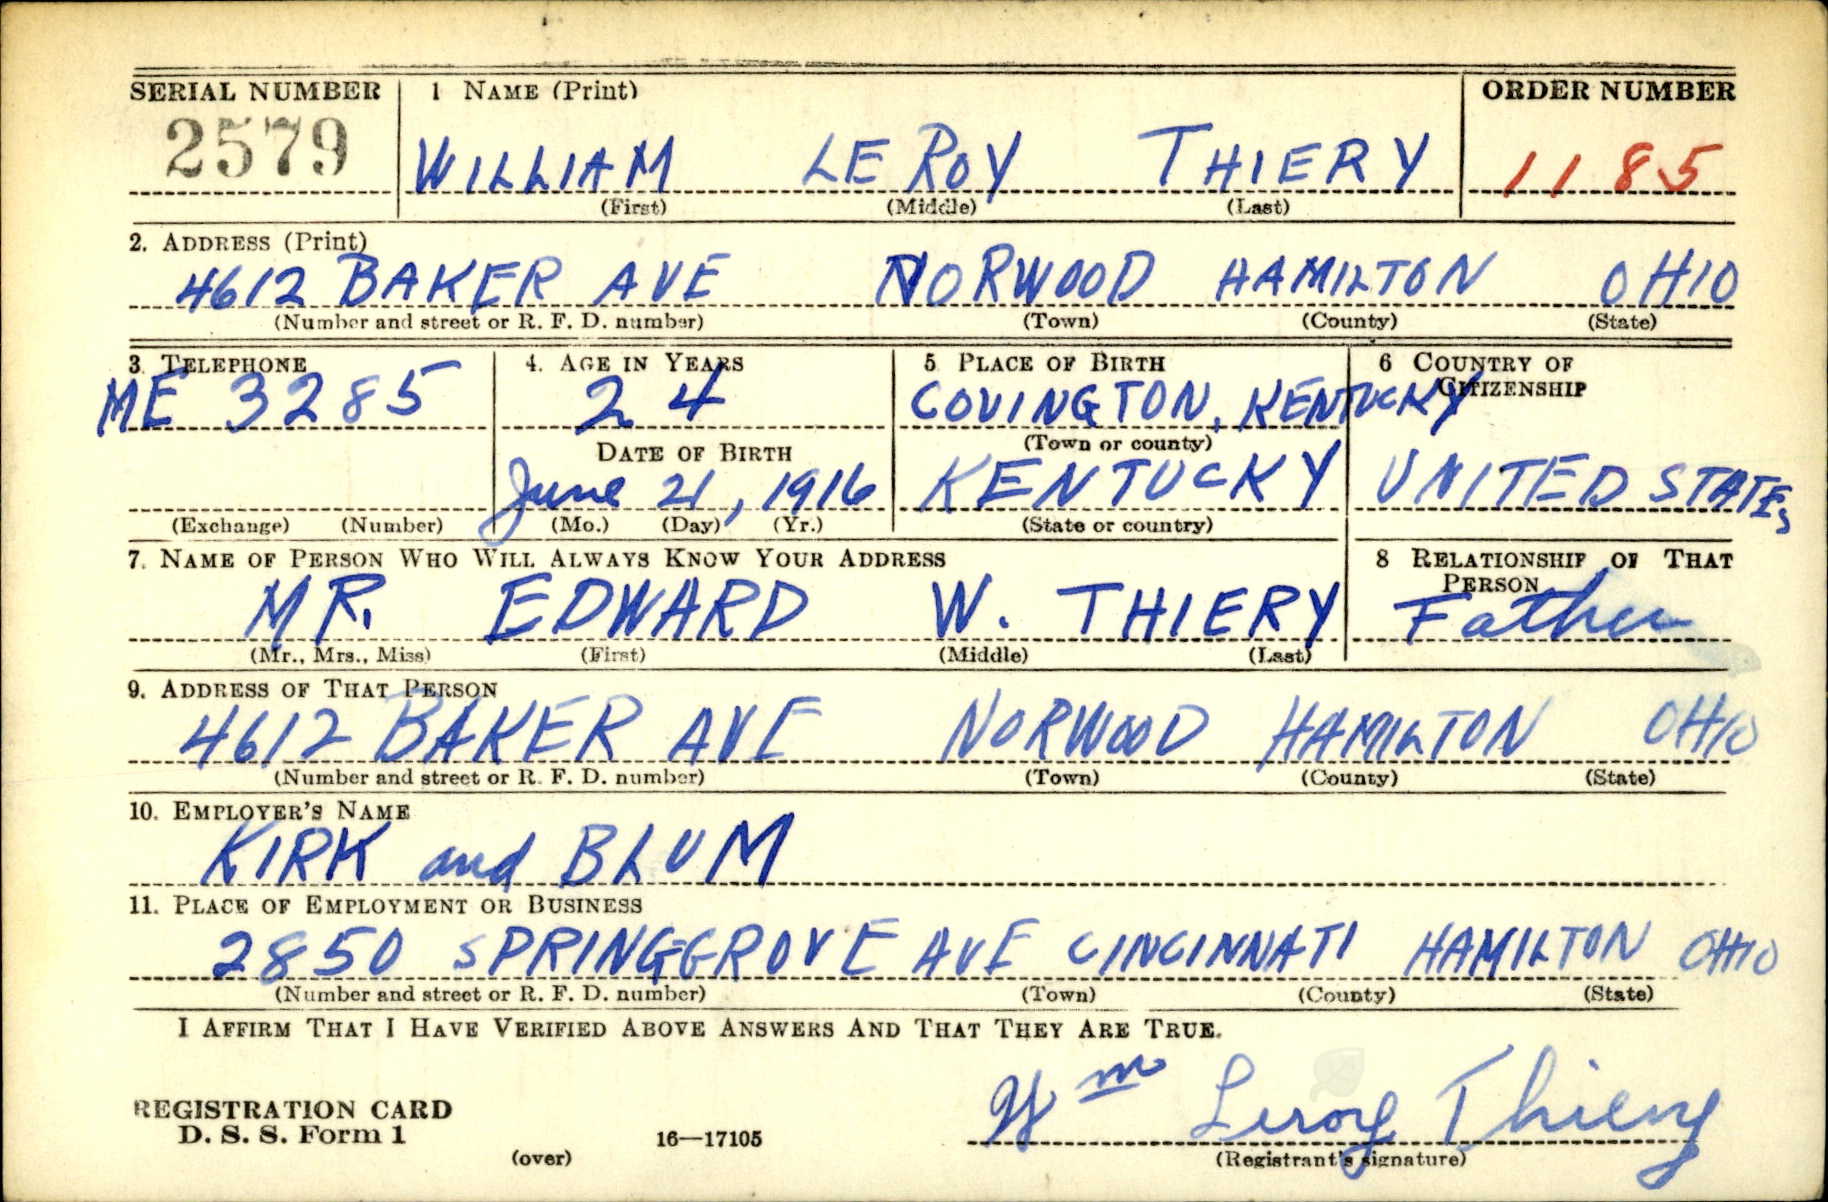 SERIAL NUMBER 1 NAME (Print) ORDER NUMBER
2579 WILLIAM LE ROY THIERY 1185
(First) (Middle) (Last)
2. ADDRESS (Print)
4612 BAKER AVE NORWOOD HAMILTON OHIO
(Number and street or R. F. D. number) (Town) (County) (State)
3 TELEPHONE 4. AGE IN YEARS 5 PLACE OF BIRTH 6 COUNTRY OF CITIZENSHIP
ME 3285 24 COVINGTON, KENTUCKY
DATE OF BIRTH (Town or county)
June 21, 1916 KENTUCKY UNITED STATES
(Exchange) (Number) (Mo.) (Day) (Yr.) (State or country)
7. NAME OF PERSON WHO WILL ALWAYS KNOW YOUR ADDRESS 8 RELATIONSHIP OF THAT PERSON
MR. EDWARD W. THIERY Father
(Mr., Mrs., Miss) (First) (Middle) (Last)
9. ADDRESS OF THAT PERSON
4612 BAKER AVE NORWOOD HAMILTON OHIO
(Number and street or R. F. D. number) (Town) (County) (State)
10. EMPLOYER'S NAME
KIRK and BLUM
11. PLACE OF EMPLOYMENT OR BUSINESS
2850 SPRINGGROVE AVE CINCINNATI HAMILTON OHIO
(Number and street or R. F. D. number) (Town) (County) (State)
I AFFIRM THAT I HAVE VERIFIED ABOVE ANSWERS AND THAT THEY ARE TRUE.
Wm Leroy Thiery
REGISTRATION CARD
D. S. S. Form 1 16—17105
(over) (Registrant's signature)